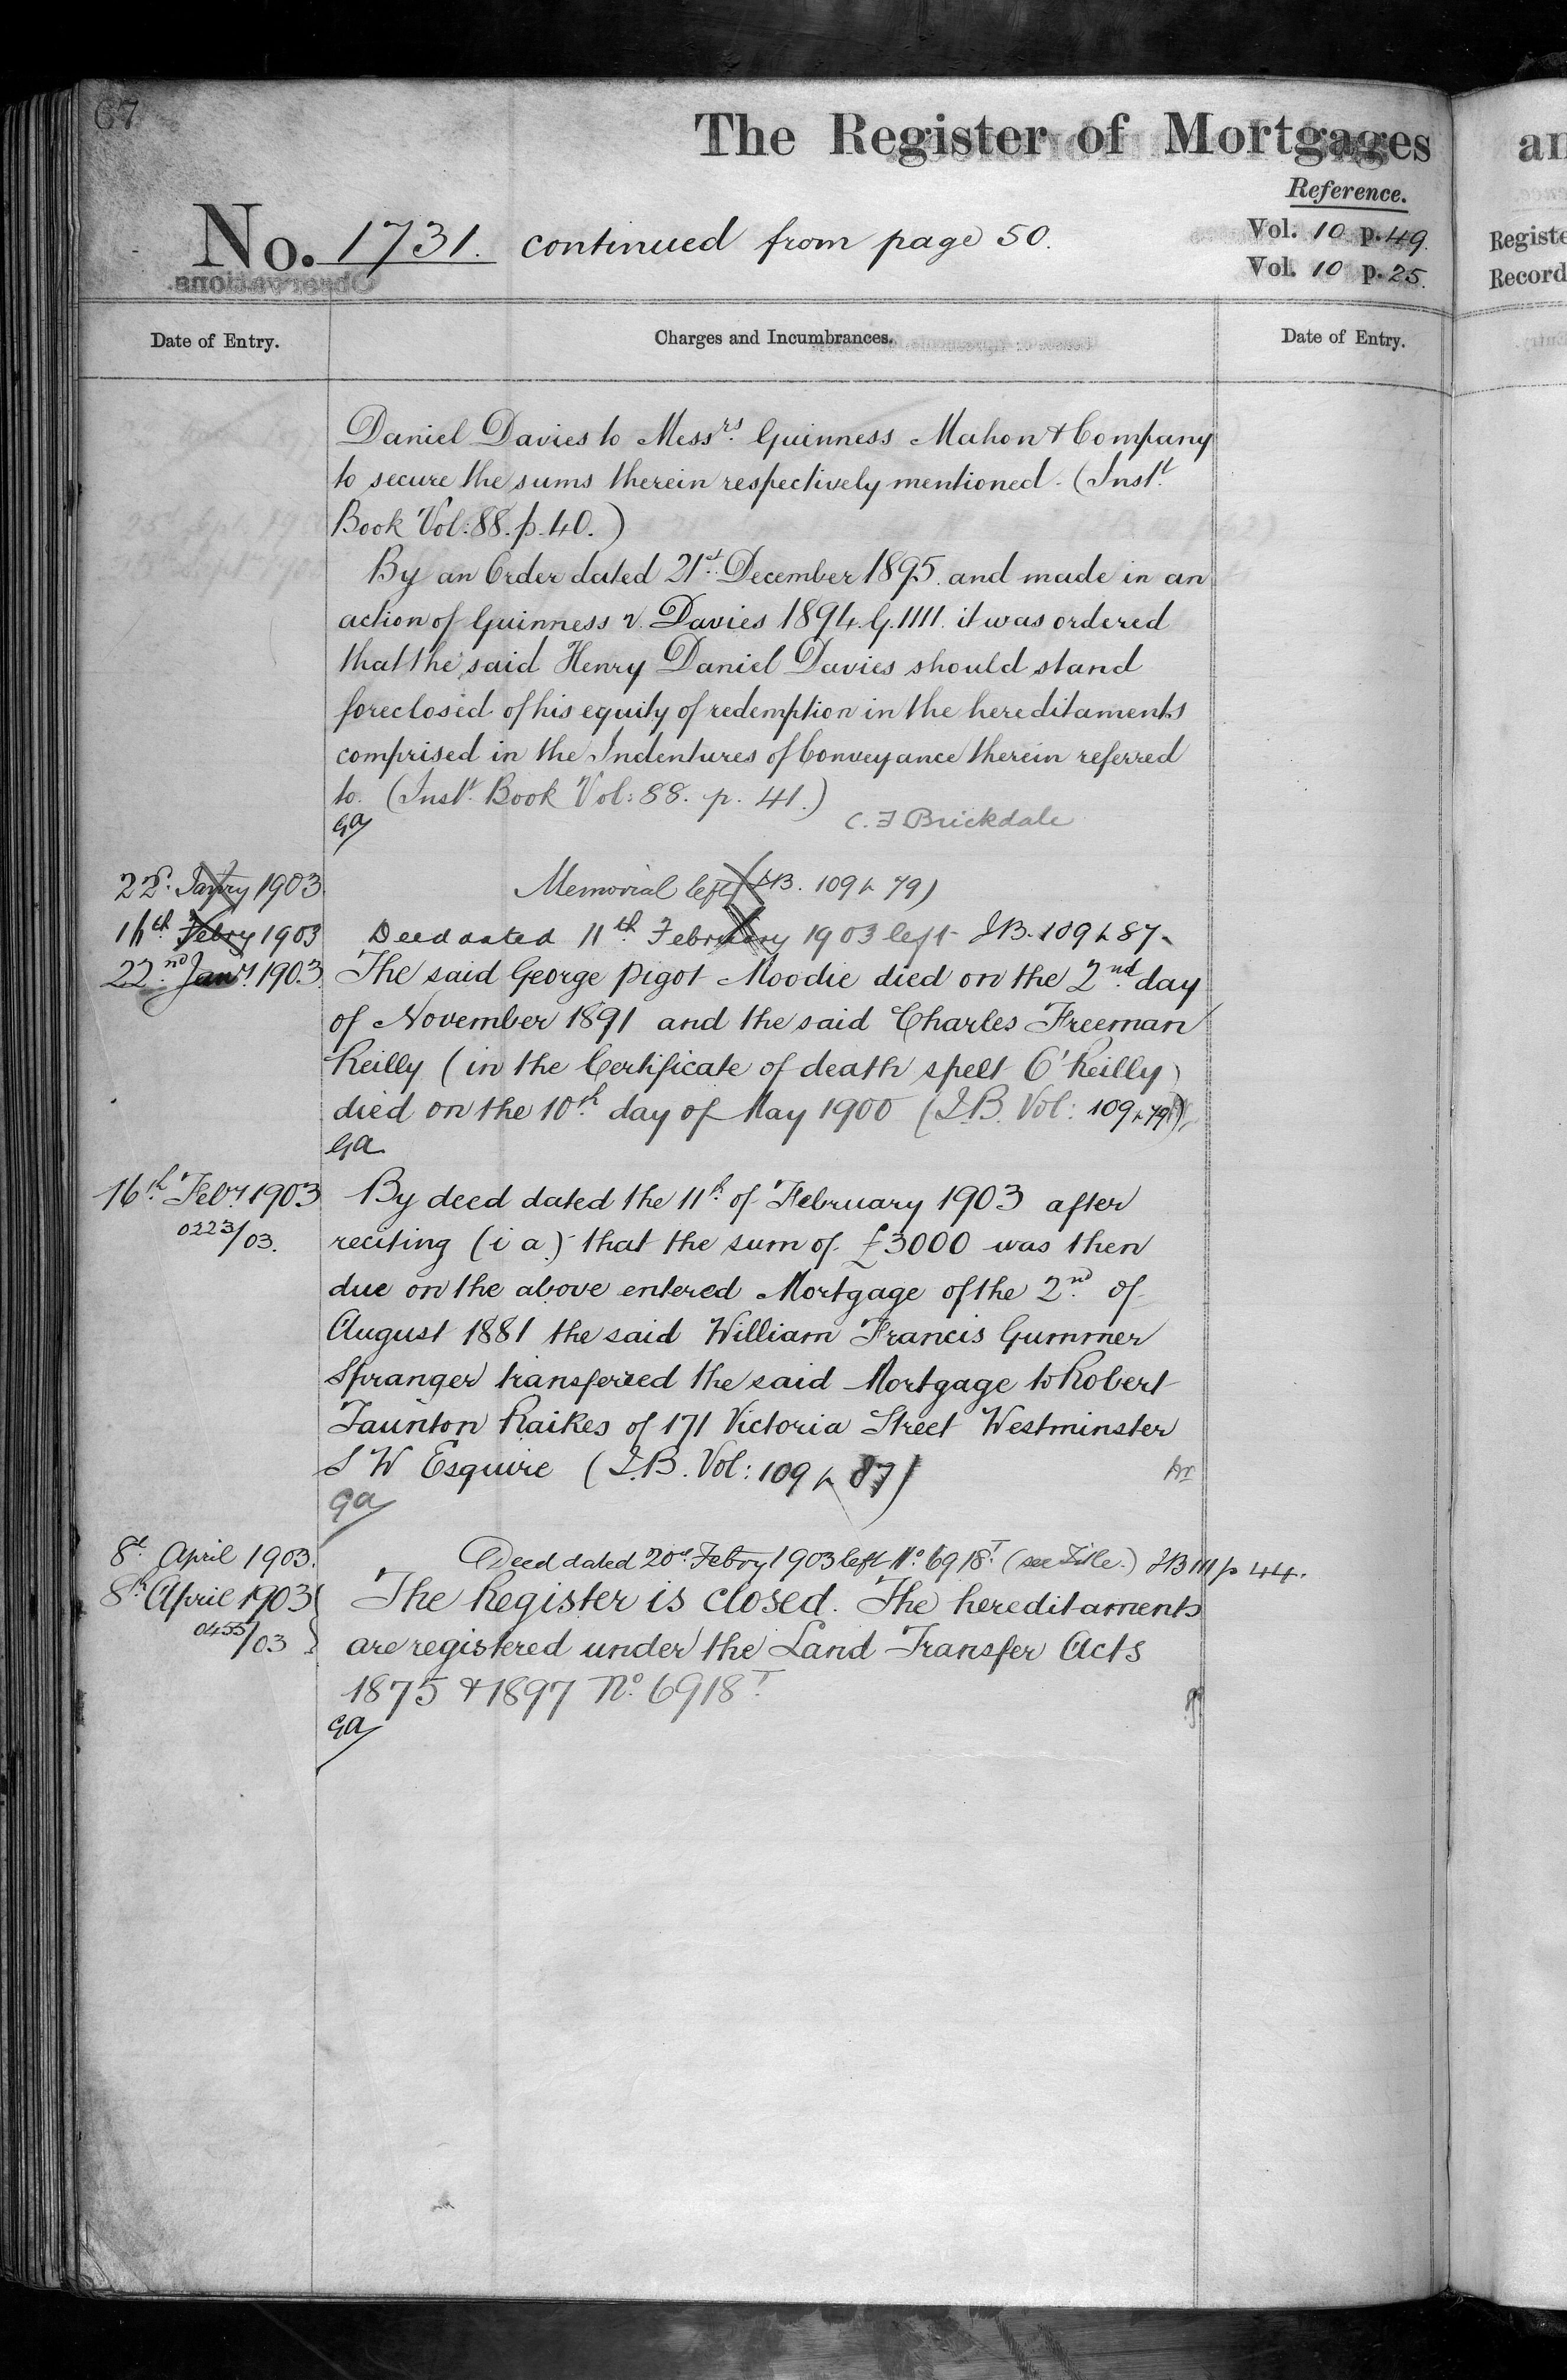 67
The Register of Mortgages
Reference.
No. 1731. continued from page 50.
Vol. 10 p. 49.
Vol. 10 p. 25.
Date of Entry.
Charges and Incumbrances.
Date of Entry.
Daniel Davies to Messrs. Guinness Mahon & Company
to secure the sums therein respectively mentioned. (Instt.
Book Vol: 88. p. 40.)
By an Order dated 21st. December 1895. and made in an
action of Guinness v. Davies 1894. G. 1111. it was ordered
that the said Henry Daniel Davies should stand
foreclosed of his equity of redemption in the hereditaments
comprised in the Indentures of Conveyance therein referred
to. (Instt. Book Vol: 88. p. 41.)
GA
C. F Brickdale
22d. Janry 1903.
Memorial left (I.B. 109 p 79)
16th Febry 1903
Deed dated 11th February 1903 left I.B. 109 p 87.
22nd Jany. 1903.
The said George Pigot Moodie died on the 2nd. day
of November 1891 and the said Charles Freeman
Reilly (in the Certificate of death spelt O'Reilly)
died on the 10th day of May 1900 (I.B. Vol: 109 p 79)
GA
16th Feby. 1903
0223/03.
By deed dated the 11th of February 1903 after
reciting (i a) that the sum of £3000 was then
due on the above entered Mortgage of the 2nd. of
August 1881 the said William Francis Gummer
Spranger transferred the said Mortgage to Robert
Taunton Raikes of 171 Victoria Street Westminster
S W Esquire (I.B. Vol: 109 p 87)
GA
8th April 1903.
Deed dated 20th Febry 1903 left No. 6918T (see Title.) IB 111 p 44.
8th April 1903
0455/03
The Register is closed. The hereditaments
are registered under the Land Transfer Acts
1875 & 1897 No. 6918T.
GA
an
Registe
Record